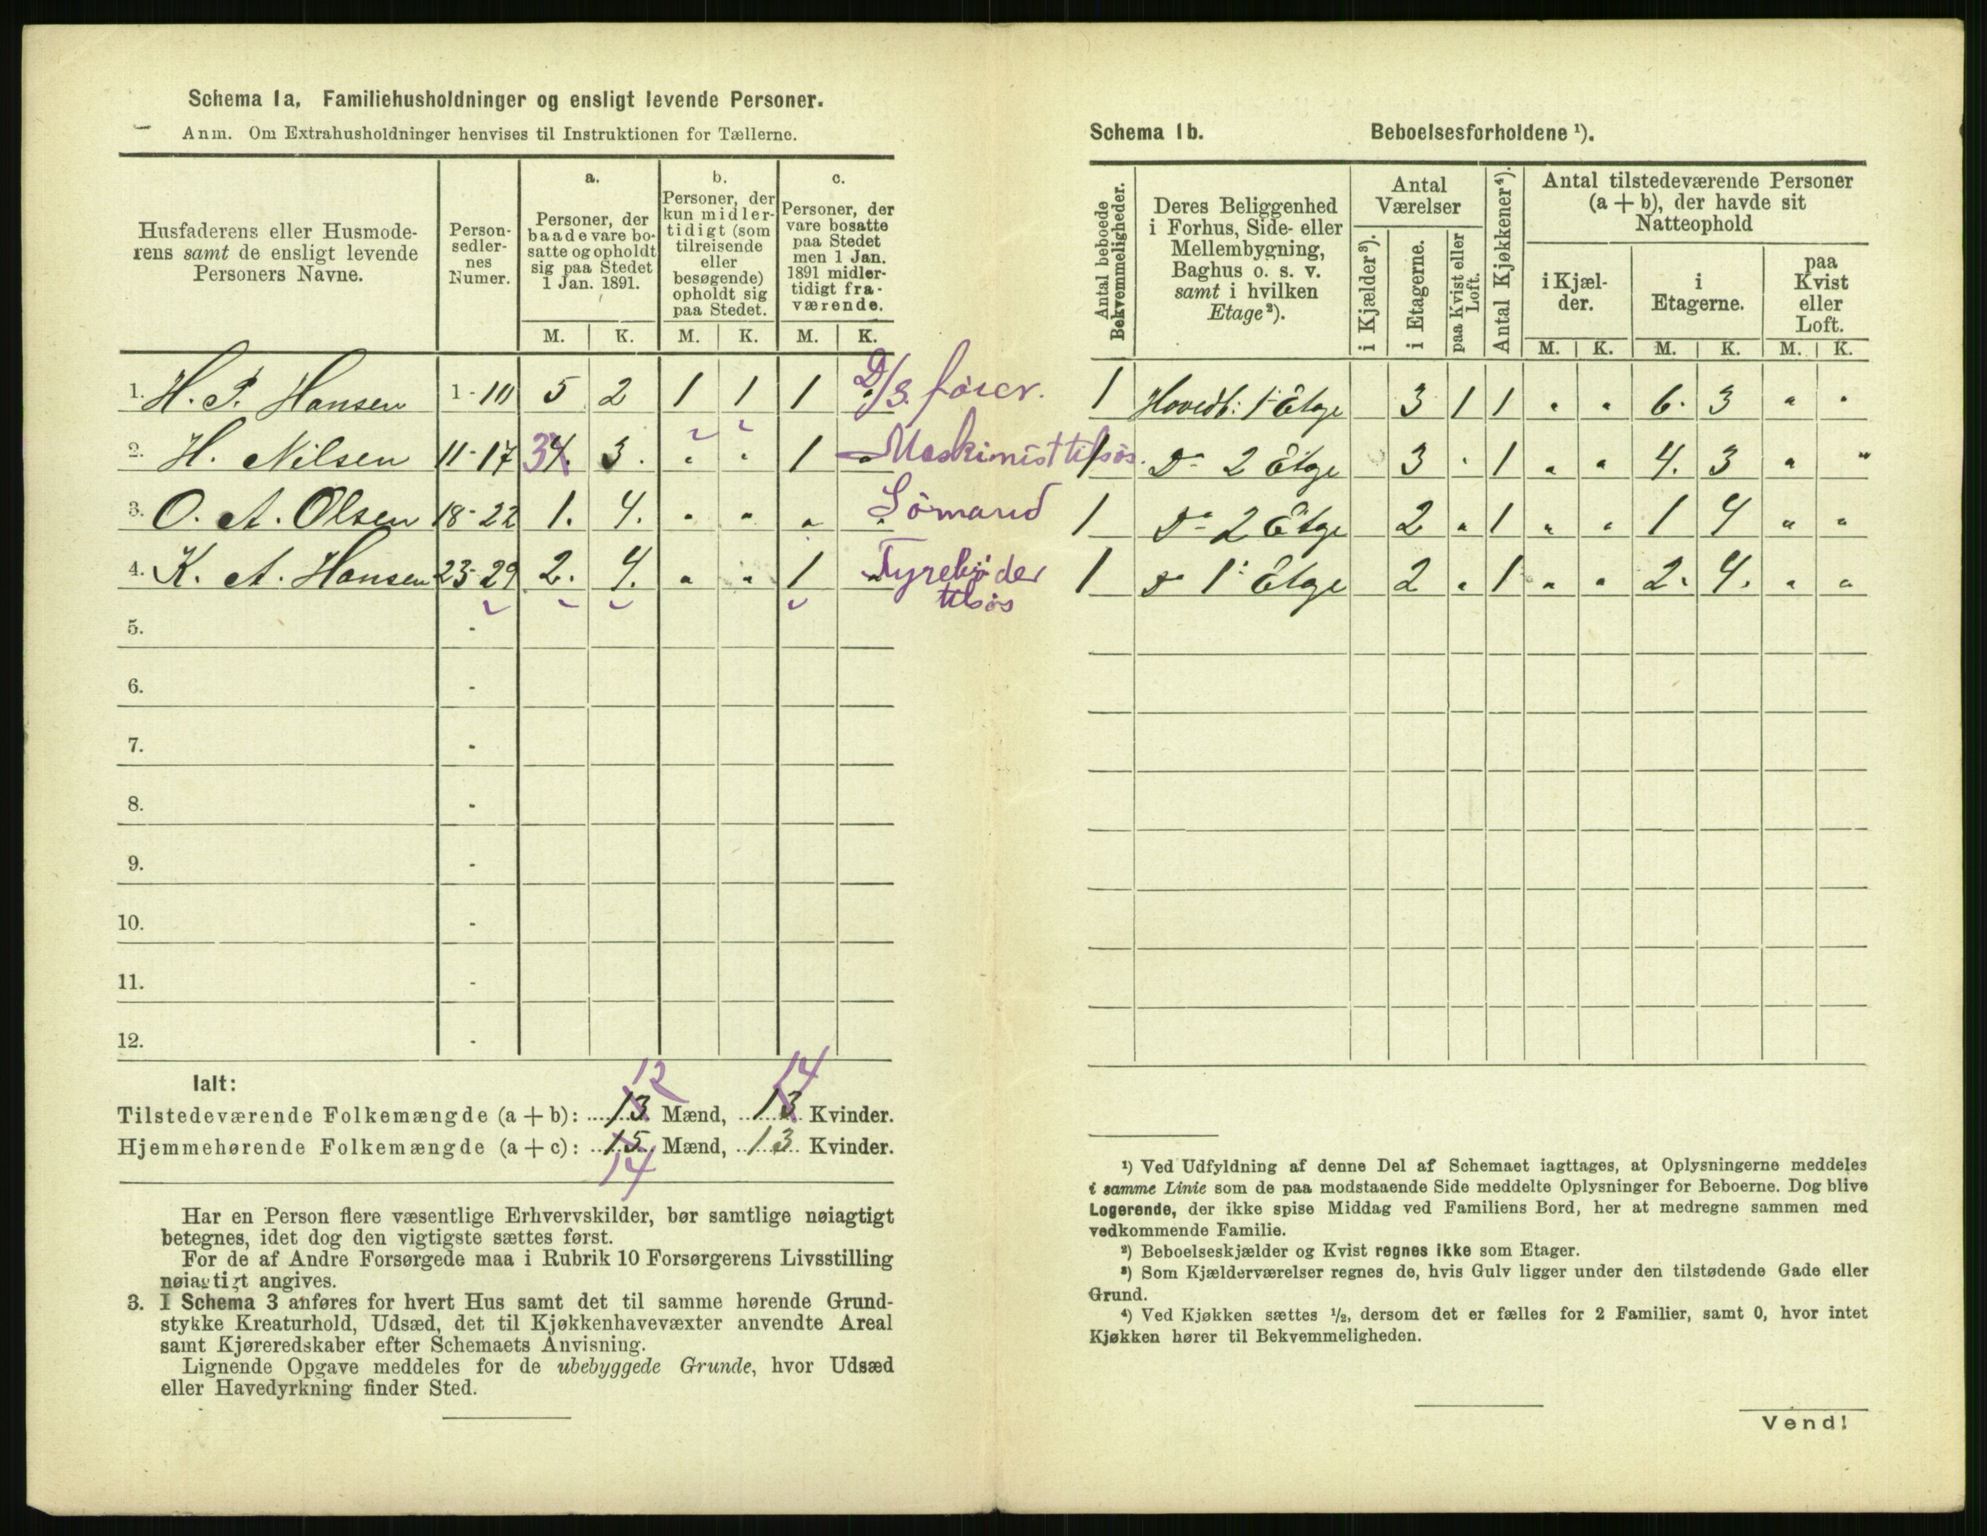 Schema 1a. Familiehusholdninger og ensligt levende Personer.
Anm. Om Extrahusholdninger henvises til Instruktionen for Tællerne.
Husfaderens eller Husmode-
rens samt de ensligt levende
Personers Navne.
Person-
sedler-
nes
Numer.
a.
Personer, der
baade vare bo-
satte og opholdt
sig paa Stedet
1 Jan. 1891.
b.
Personer, der
kun midler-
tidigt (som
tilreisende
eller
besøgende)
opholdt sig
paa Stedet.
c.
Personer, der
vare bosatte
paa Stedet
men 1 Jan.
1891 midler-
tidigt fra-
værende.
M. K. M. K. M. K.
1. H. P. Hansen 1-10 5 2 1 1 1 „ D/S. fører.
2. H. Nilsen 11-17 34. 3. „ „ 1 „ Maskinist tilsøs.
3. O. A. Olsen 18-22 1. 4. „ „ „ „ Sømand
4. K. A. Hansen 23-29 2. 4. „ „ 1 „ Fyrebøder
tilsøs
5. -
6. -
7. -
8. -
9. -
10. -
11. -
12. -
Ialt:
12 14
Tilstedeværende Folkemængde (a + b): 13 Mænd, 13 Kvinder.
Hjemmehørende Folkemængde (a + c): 15 Mænd, 13 Kvinder.
14
Har en Person flere væsentlige Erhvervskilder, bør samtlige nøiagtigt
betegnes, idet dog den vigtigste sættes først.
For de af Andre Forsørgede maa i Rubrik 10 Forsørgerens Livsstilling
nøiagtigt angives.
3. I Schema 3 anføres for hvert Hus samt det til samme hørende Grund-
stykke Kreaturhold, Udsæd, det til Kjøkkenhavevæxter anvendte Areal
samt Kjøreredskaber efter Schemaets Anvisning.
Lignende Opgave meddeles for de ubebyggede Grunde, hvor Udsæd
eller Havedyrkning finder Sted.
Schema 1b. Beboelsesforholdene ¹).
Antal beboede
Bekvemmeligheder.
Deres Beliggenhed
i Forhus, Side- eller
Mellembygning,
Baghus o. s. v.
samt i hvilken
Etage²).
Antal
Værelser
i Kjælder³).
i Etagerne.
paa Kvist eller
Loft.
Antal Kjøkkener⁴).
Antal tilstedeværende Personer
(a + b), der havde sit
Natteophold
i Kjæl-
der.
i
Etagerne.
paa
Kvist
eller
Loft.
M. K. M. K. M. K.
1 Hovedb: 1 Etge 3 1 1 „ „ 6. 3 „ „
1 Do 2 Etge 3 „ 1 „ „ 4. 3 „ „
1 Do 2 Etge 2 „ 1 „ „ 1 4 „ „
1 Do 1 Etge 2 „ 1 „ „ 2. 4. „ „
¹) Ved Udfyldning af denne Del af Schemaet iagttages, at Oplysningerne meddeles
i samme Linie som de paa modstaaende Side meddelte Oplysninger for Beboerne. Dog blive
Logerende, der ikke spise Middag ved Familiens Bord, her at medregne sammen med
vedkommende Familie.
²) Beboelseskjælder og Kvist regnes ikke som Etager.
³) Som Kjælderværelser regnes de, hvis Gulv ligger under den tilstødende Gade eller
Grund.
⁴) Ved Kjøkken sættes ½, dersom det er fælles for 2 Familier, samt 0, hvor intet
Kjøkken hører til Bekvemmeligheden.
Vend!